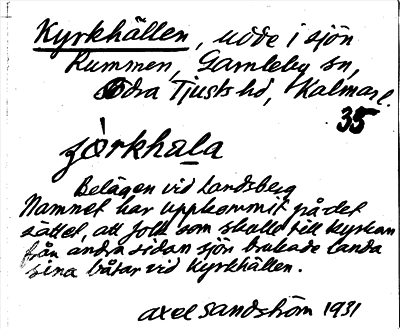 Kyrkhällen, udde i sjön
Rummen, Gamleby sn,
södra Tjusts hd, Kalmar l.
35
Belägen vid Landsberg
Namnet har uppkommit på det
sättet, att folk som skulle till kyrkan
från andra sidan sjön brukade landa
sina båtar vid Kyrkhällen.
Axel Sandström 1931